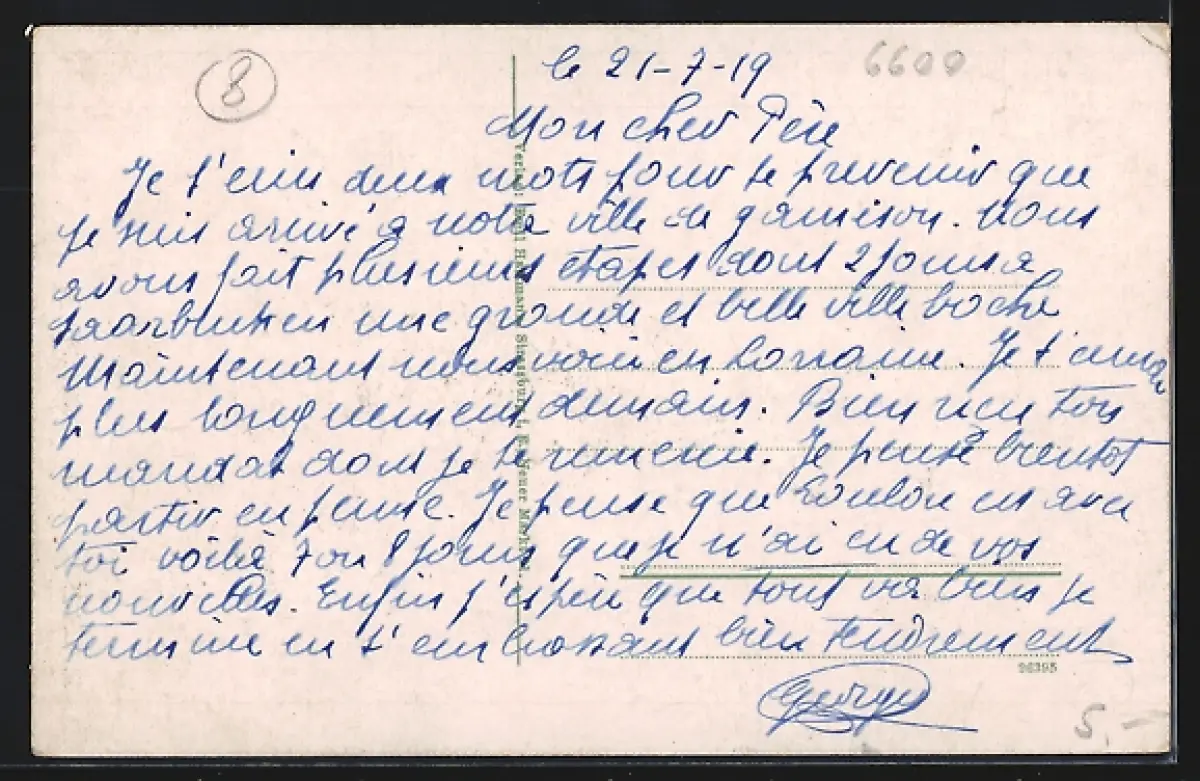 8
6600
le 21-7-19
Mon cher Père
Je t'écris deux mots pour te prevenir que
je suis arrivé a notre ville de garnison. Nous
avons fait plusieurs etapes dont 2 jours a
Saarbruken une grande et belle ville boche
Maintenant nous voici en Lorraine. Je t'
plus longuement demain. Bien reçu ton
mandat dont je te remercie. Je pense bientot
partir en perme. Je pense que Loulou est avec
toi voilà 7 ou 8 jours que je n'ai eu de vos
nouvelles. Enfin j'espère que tout va bien je
termine en t'embrassant bien tendrement
Georges
96395
5,-